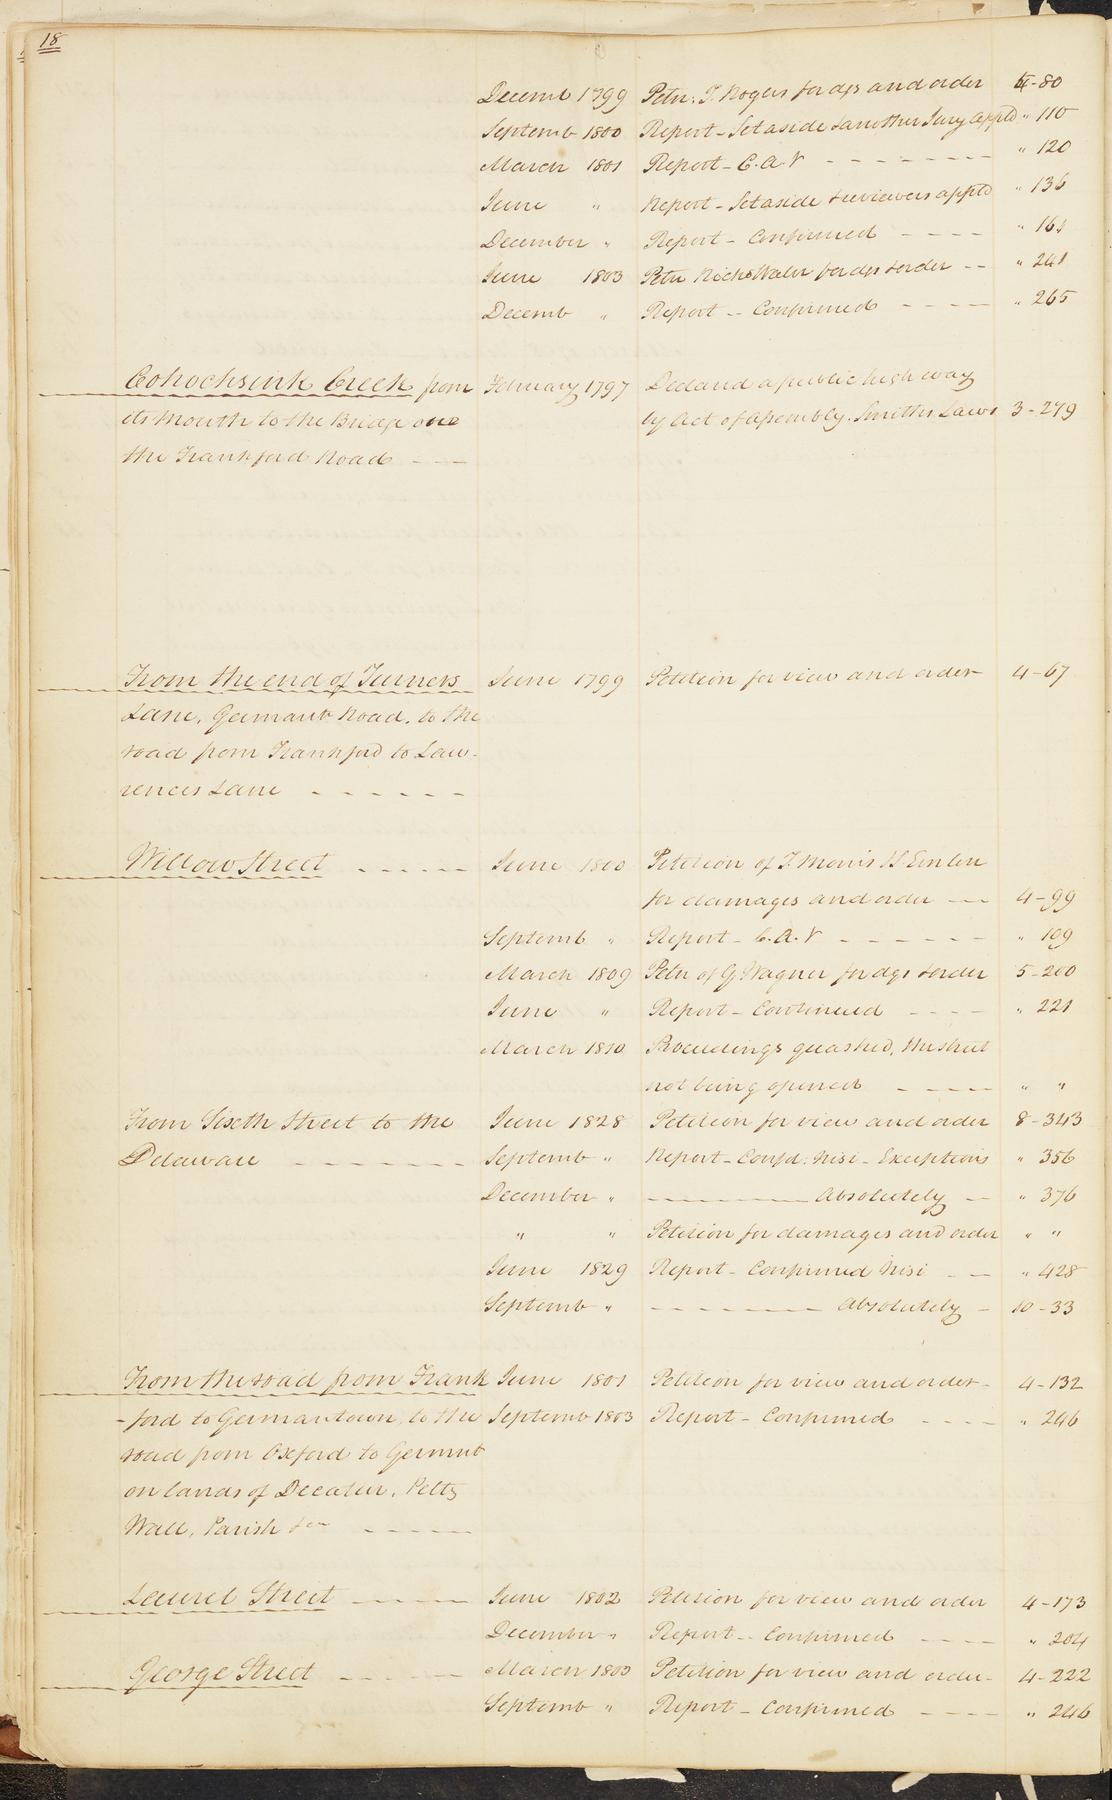 18
Decemb 1799 Petn: J. Rogers for dgs and order 4-80
Septemb 1800 Report - Set aside & another Jury appt'd " 110
March 1801 Report - C.A.V - - - - - - - - " 120
June " Report - Set aside & reviewers apptd " 136
December " Report - Confirmed - - - - " 161
June 1803 Petn Nichs Waln for dgs & order - - " 241
Decemb " Report -- Confirmed - - - - " 265
Cohochsink Creek from February 1797 Declared a public high way
its mouth to the Bridge over by Act of Assembly. Smiths Laws 3-279
the Frankford Road - - -
From the end of Turners June 1799 Petition for view and order 4-67
Lane, Germant Road, to the
road from Frankford to Law-
rences Lane - - - - - -
Willow Street - - - - - June 1800 Petition of J Morris & Emlen
for damages and order - - - 4-99
Septemb " Report - C.A.V - - - - - - " 109
March 1809 Petn of G Wagner for dgs & order 5-200
June " Report - Continued - - - - " 221
March 1810 Proceedings quashed, the street
not being opened - - - - - " "
From Sixth Street to the June 1828 Petition for view and order 8-343
Delaware - - - - - - - Septemb " Report - Confd: Nisi - Exceptions " 356
December " - - - - - - - Absolutely - " 376
" " Petition for damages and order " "
June 1829 Report - Confirmed Nisi - - " 428
Septemb " - - - - - - - - Absolutely - 10-33
From the road from Frank June 1801 Petition for view and order - 4-132
-ford to Germantown, to the Septemb 1803 Report - Confirmed - - - - " 246
road from Oxford to Germnt
on lands of Decatur, Petty
Wall, Parish &ca - - - - -
Laurel Street - - - - - June 1802 Petition for view and order 4-173
December " Report -- Confirmed - - - - " 204
George Street - - - - - March 1803 Petition for view and order - 4-222
Septemb " Report - Confirmed - - - - " 246